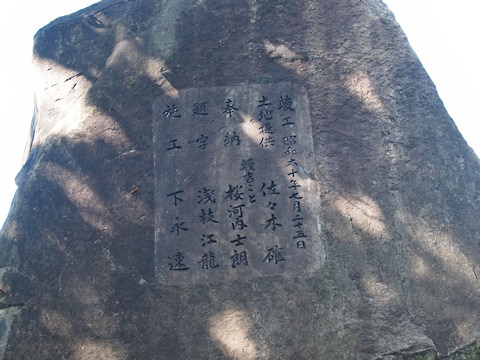 竣工 昭和六十年七月二十五日
土地提供 佐々木 碓
奉納 鰻吉こと 桜河内士朗
題字 浅枝江龍
施工 下永 速